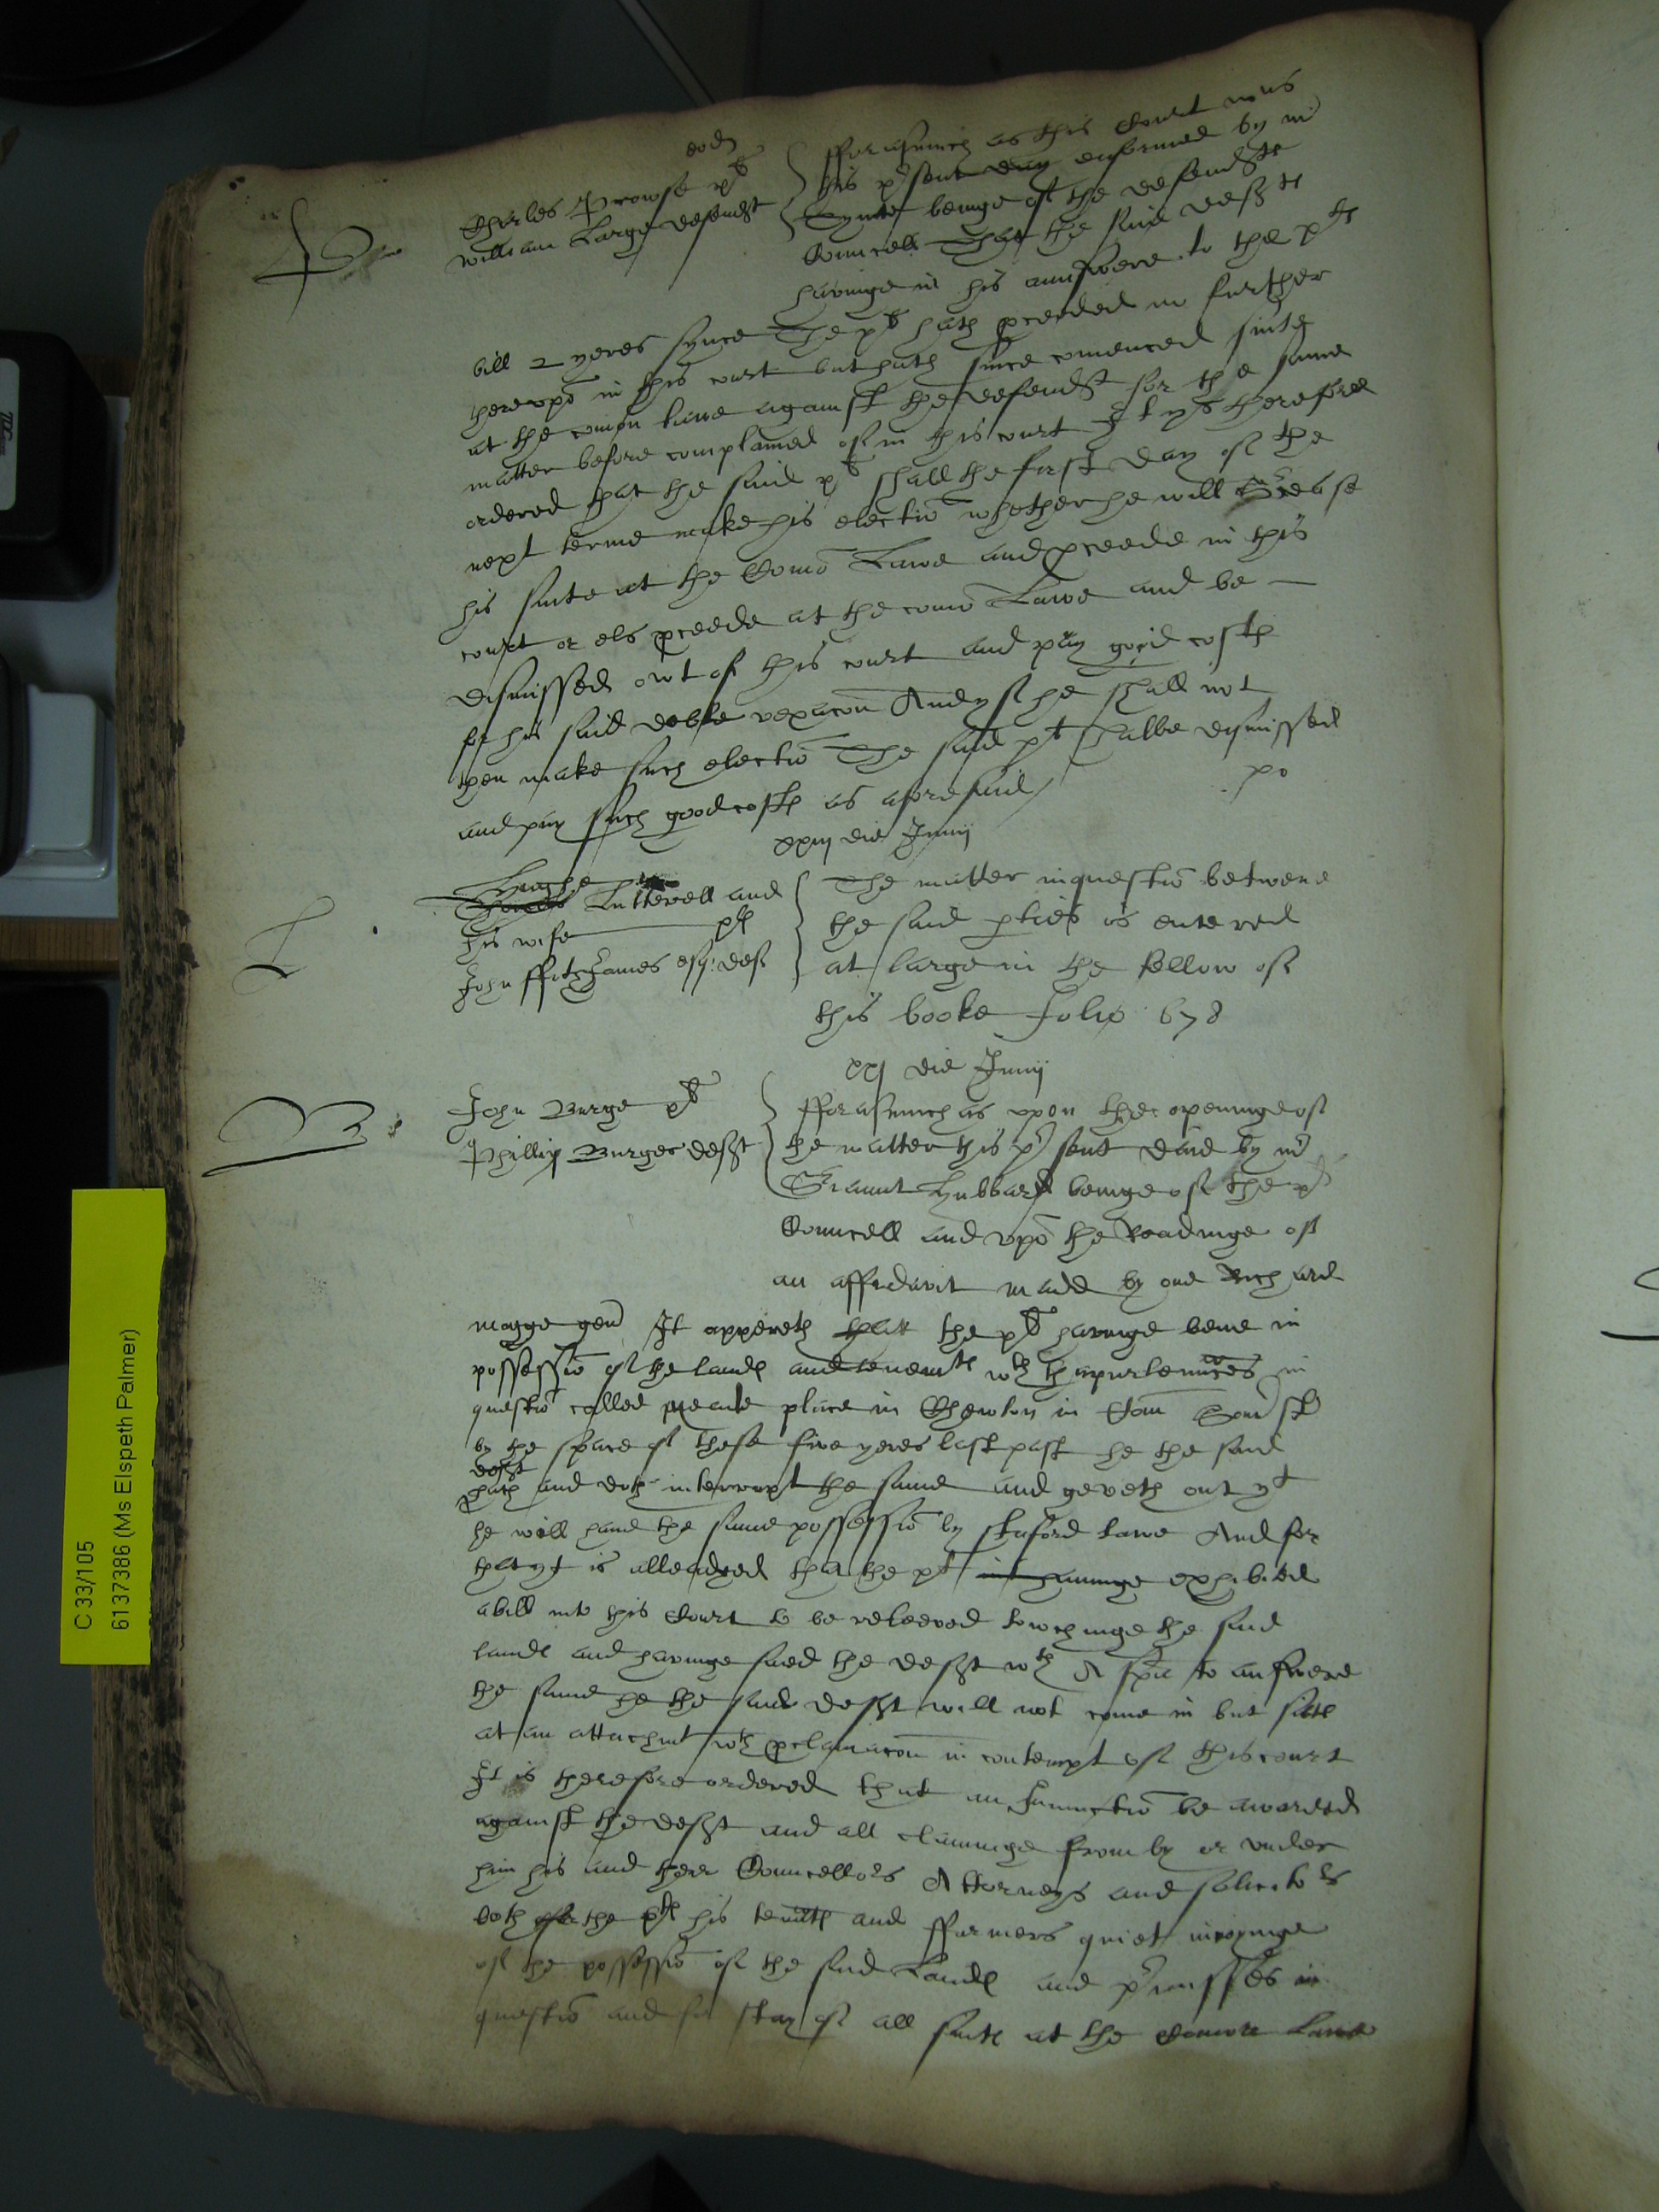 eod
P
Charles Prowse pt
William Large defendt
fforasmuch as this Court was
this psent day enformed by mr
beinge of the defendts
Councell That the said deft
havinge in his aunswere to the pts
bill 2 yeres synce The pt hath pceeded no further
therevpo in this court but hath since comenced suite
at the comon lawe against the defendt for the same
matter before complained of in this court It ys therefore
ordered that the said pt shall the first day of the
next terme make his electio whether he will cease
his suite at the Como Lawe and pceede in this
court or els pceede at the como Lawe and be
dismissed owt of this court and pay good costs
for his said doble vexacon And yf he shall not
then make such electio The said pt shalbe dismissed
and pay such good costs as aforesaid
po
xxiij die Junij
L
Hughe Lutterell and
his wife pts
John ffitzJames esq: def
The matter in questio betwene
the said pties is entered
at large in the fellow of
this booke folio 678
xxj die Junij
B
John Burge pt
Phillip Burges deft
fforasmuch as vpon the openinge of
the matter this psent daie by mr
Siaunt Hubbard beinge of the pts
Councell and vpo the Readinge of
an affidavit made by one Richard
magge gen It appereth that the pt havinge bene in
possessio of the lands and tenemts wth thapurtennces in
questio called meade place in Chewton in Com Somst
by the space of these five yeres last past he the said
deft
hath and doth interrupt the same and geveth out yt
he will haue the same possessio by sute of Lawe And for
that yt is alleadged that the pt havinge exhibited
a bill into this Court to be releeved towchinge the said
lands and havinge sued the deft wth A spa to answere
the same he the said deft will not come in but sitts
at an attachmt wth pclamacon in contempt of this court
It is therefore ordered that an Iniunctio be awarded
against the deft and all clayminge from by or vnder
him his and their Councellors Attorneys and solicitors
both for the pts his tennts and ffarmers quiet inioyinge
of the possessio of the said Lands and pmisses in
questio and for stay of all suits at the comon Lawe
C 33/105
6137386 (Ms Elspeth Palmer)